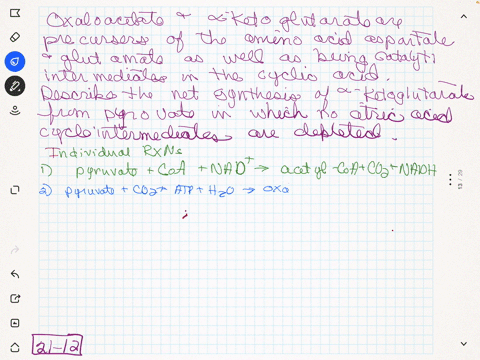 Oxaloacetate & α-Ketoglutarate are
precursers of the amino acid aspartate
& glutamate as well as being catalyti
intermediates in the cyclic acid.
Describe the net synthesis of α-Ketoglutarate
from pyruvate in which no citric acid
cycle intermediates are depleted.
Individual RXNs
1) pyruvate + CoA + NAD⁺ → acetyl-CoA + CO₂ + NADH
2) pyruvate + CO₂ + ATP + H₂O → oxa
21-12